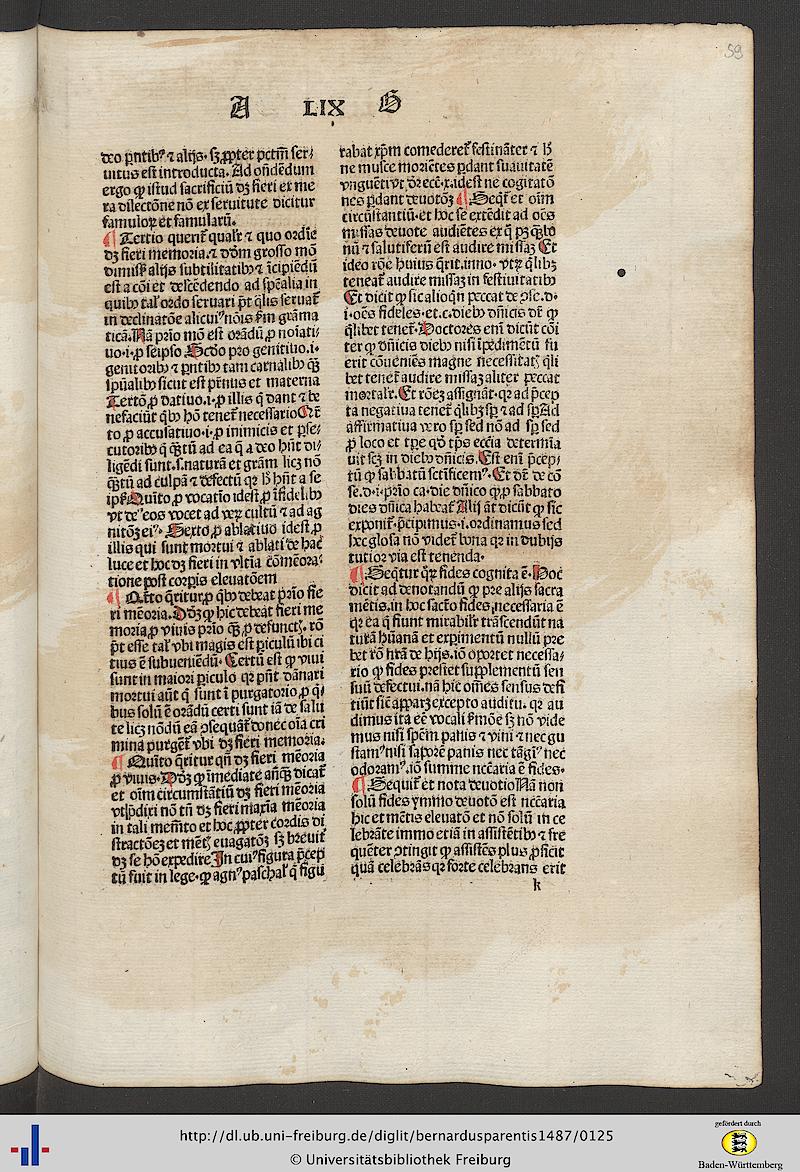 59
A LIX G
deo p̄ntib⁹ ⁊ alijs. sꝫ ꝓpter pctm̄ ser⸗
uitus est introducta. Ad oñdēdum
ergo ꝙ istud sacrificiū dꝫ fieri ex me
ra dilectōne nō ex seruitute dicitur
famuloꝝ et famularū.
¶ Tertio querit᷑ qualr̄ ⁊ quo ordīe
dꝫ fieri memoria. ⁊ dōm grosso mō
dimiss̄ alijs subtilitatibꝰ ⁊ īcipiēdū
est a cōi et descēdendo ad sp̄ealia in
quibꝰ tal᷑ ordo seruari p̄t q̄lis seruat᷑
in declinatōe alicui⁹ nōis km̄ grāma
ticā. Nā prīo mō est orādū ꝓ noīati⸗
uo. i. ꝓ seipso Scdō pro genitiuo. i.
genitoribꝰ ⁊ p̄ntibꝰ tam carnalibꝰ qꝫ̄
sp̄ualibꝰ sicut est pr̄nus et materna
Tertō ꝓ datiuo. i. ꝓ illis q̄ dant ⁊ be
nefaciūt qb̄ꝰ hō tenet᷑ necessario Qr̄
to ꝓ accusatiuo. i. ꝓ inimicis et ꝑse⸗
cutoribꝰ q̄ qꝫ̄tū ad ea q̄ a deo hn̄t di⸗
ligēdi sunt. s. naturā et grām licꝫ nō
qꝫ̄tū ad culpā ⁊ defectū qr̄ hꝰ hn̄t a se
ipẜ Quīto ꝓ vocatīo idest ꝓ īfidelibꝰ
vt de⁹ eos vocet ad veꝝ cultū ⁊ ad ag
nitōꝫ ei⁹. Sexto ꝓ ablatiuo idest ꝓ
illis qui sunt mortui ⁊ ablati de hac
luce et hoc dꝫ fieri in vltīa cōmēora⸗
tione post corꝑis eleuatōem
¶ Qr̄to q̄ritur ꝓ qbꝰ debeat prīo fie
ri mēoria. Dōꝫ ꝙ hic debeat fieri me
moria ꝓ viuis prīo qꝫ̄ ꝓ defunctꝭ. rō
p̄t esse tal᷑ vbi magis est ꝑiculū ibi ci
tius ē subueniēdū. Certū est ꝙ viui
sunt in maiori ꝑiculo qr̄ pn̄t dānari
mortui aūt q̄ sunt ī purgatorio ꝓ q̄⸗
bus solū ē orādū certi sunt iā de salu
te licꝫ nōdū eā ꝯsequāt᷑ donec oīa cri
mina purgēt᷑ vbi dꝫ fieri memoria.
¶ Quīto q̄ritur qn̄ dꝫ fieri mēoria
ꝓ viuis. Dōꝫ ꝙ īmediate anꝙ̄ dicat᷑
et oīm circumstātiū dꝫ fieri mēoria
vt p̄dixi nō tn̄ dꝫ fieri maxīa mēoria
in tali memēto et hoc ꝓpter cordis di
stractōeꝫ et mētꝭ euagatōꝫ sꝫ breuit᷑
dꝫ se hō expedire In cui⁹ figura p̄cep
tū fuit in lege. ꝙ agn⁹ paschal᷑ q̄ figu
rabat xp̄m comederet᷑ festināter ⁊ hꝰ
ne musce moriētes ꝑdant suauitatē
vnguēti vt dr̄ ecc̄. x. idest ne cogitatō
nes ꝑdant deuotōꝫ ¶ Seqt᷑ et oīm
circūstantiū. et hoc se extēdit ad oēs
missas deuote audiētes ex q̄ pꝫ qꝫ̄ bo
nū ⁊ salutiferū est audire missaꝫ Et
ideo rōe huius q̄rit. inno. vtꝝ q̄libꝫ
teneat᷑ audire missaꝫ in festiuitatibꝰ
Et dicit ꝙ sic alioqn̄ peccat de ꝯse. d.
i. oēs fideles. et. c. diebꝰ dn̄icis dr̄ ꝙ
q̄libet tenet᷑. Doctores enī dicūt cōi
ter ꝙ dn̄icis diebꝰ nisi īpedimētū fu
erit cōueniēs magne necessitatꝭ q̄li
bet tenet᷑ audire missaꝫ aliter peccat
mortalr̄. Et rōeꝫ assignāt. qr̄ ad p̄cep
ta negatiua tenet᷑ q̄libꝫ sꝑ ⁊ ad sꝑ Ad
affirmatiua vero sꝑ sed nō ad sꝑ sed
ꝓ loco et tꝑe qd̄ tp̄s eccīa determīa
uit scꝫ in diebꝰ dn̄icis. Est enī p̄cep⸗
tū ꝙ sabbatū sctīficem⁹. Et dr̄ de cō
se. d. i. prīo ca. die dn̄ico ꝙ ꝓ sabbato
dies dn̄ica habeat᷑ Alij āt dicūt ꝙ sic
exponit᷑. p̄cipimus. i. ordinamus sed
hec glosa nō videt᷑ bona qr̄ in dubijs
tutior via est tenenda.
¶ Seqt᷑ur qr̄ꝫ fides cognita ē. Hoc
dicit ad denotandū ꝙ pre alijs sacra
mētis. in hoc sacrō fides necessaria ē
qr̄ ea q̄ fiunt mirabilr̄ trāscendūt na
turā hūanā et expimentū nullū pre
bet rō nr̄a de hijs. iō oportet necessa⸗
rio ꝙ fides prestet supplementū sen
suū defectui. nā hic oēs sensus defi
tiūt sic apparꝫ excepto auditu. qr̄ au
dimus ita eē vocali s̄mōe sꝫ nō vide
mus nisi sp̄em panis ⁊ vini ⁊ nec gu
stam⁹ nisi saporē panis nec tāgi⁹ nec
odoram⁹. iō summe nēcāria ē fides.
¶ Sequit᷑ et nota deuotio Nā non
solū fides ymmo deuotō est nēcāria
hic et mētis eleuatō et nō solū in ce
lebrāte immo etiā in assistētibꝰ ⁊ fre
quēter ꝯtingit ꝙ assistēs plus ꝓficit
quā celebrās qr̄ forte celebrans erit
k
http://dl.ub.uni-freiburg.de/diglit/bernardusparentis1487/0125
© Universitätsbibliothek Freiburg
gefördert durch
Baden-Württemberg